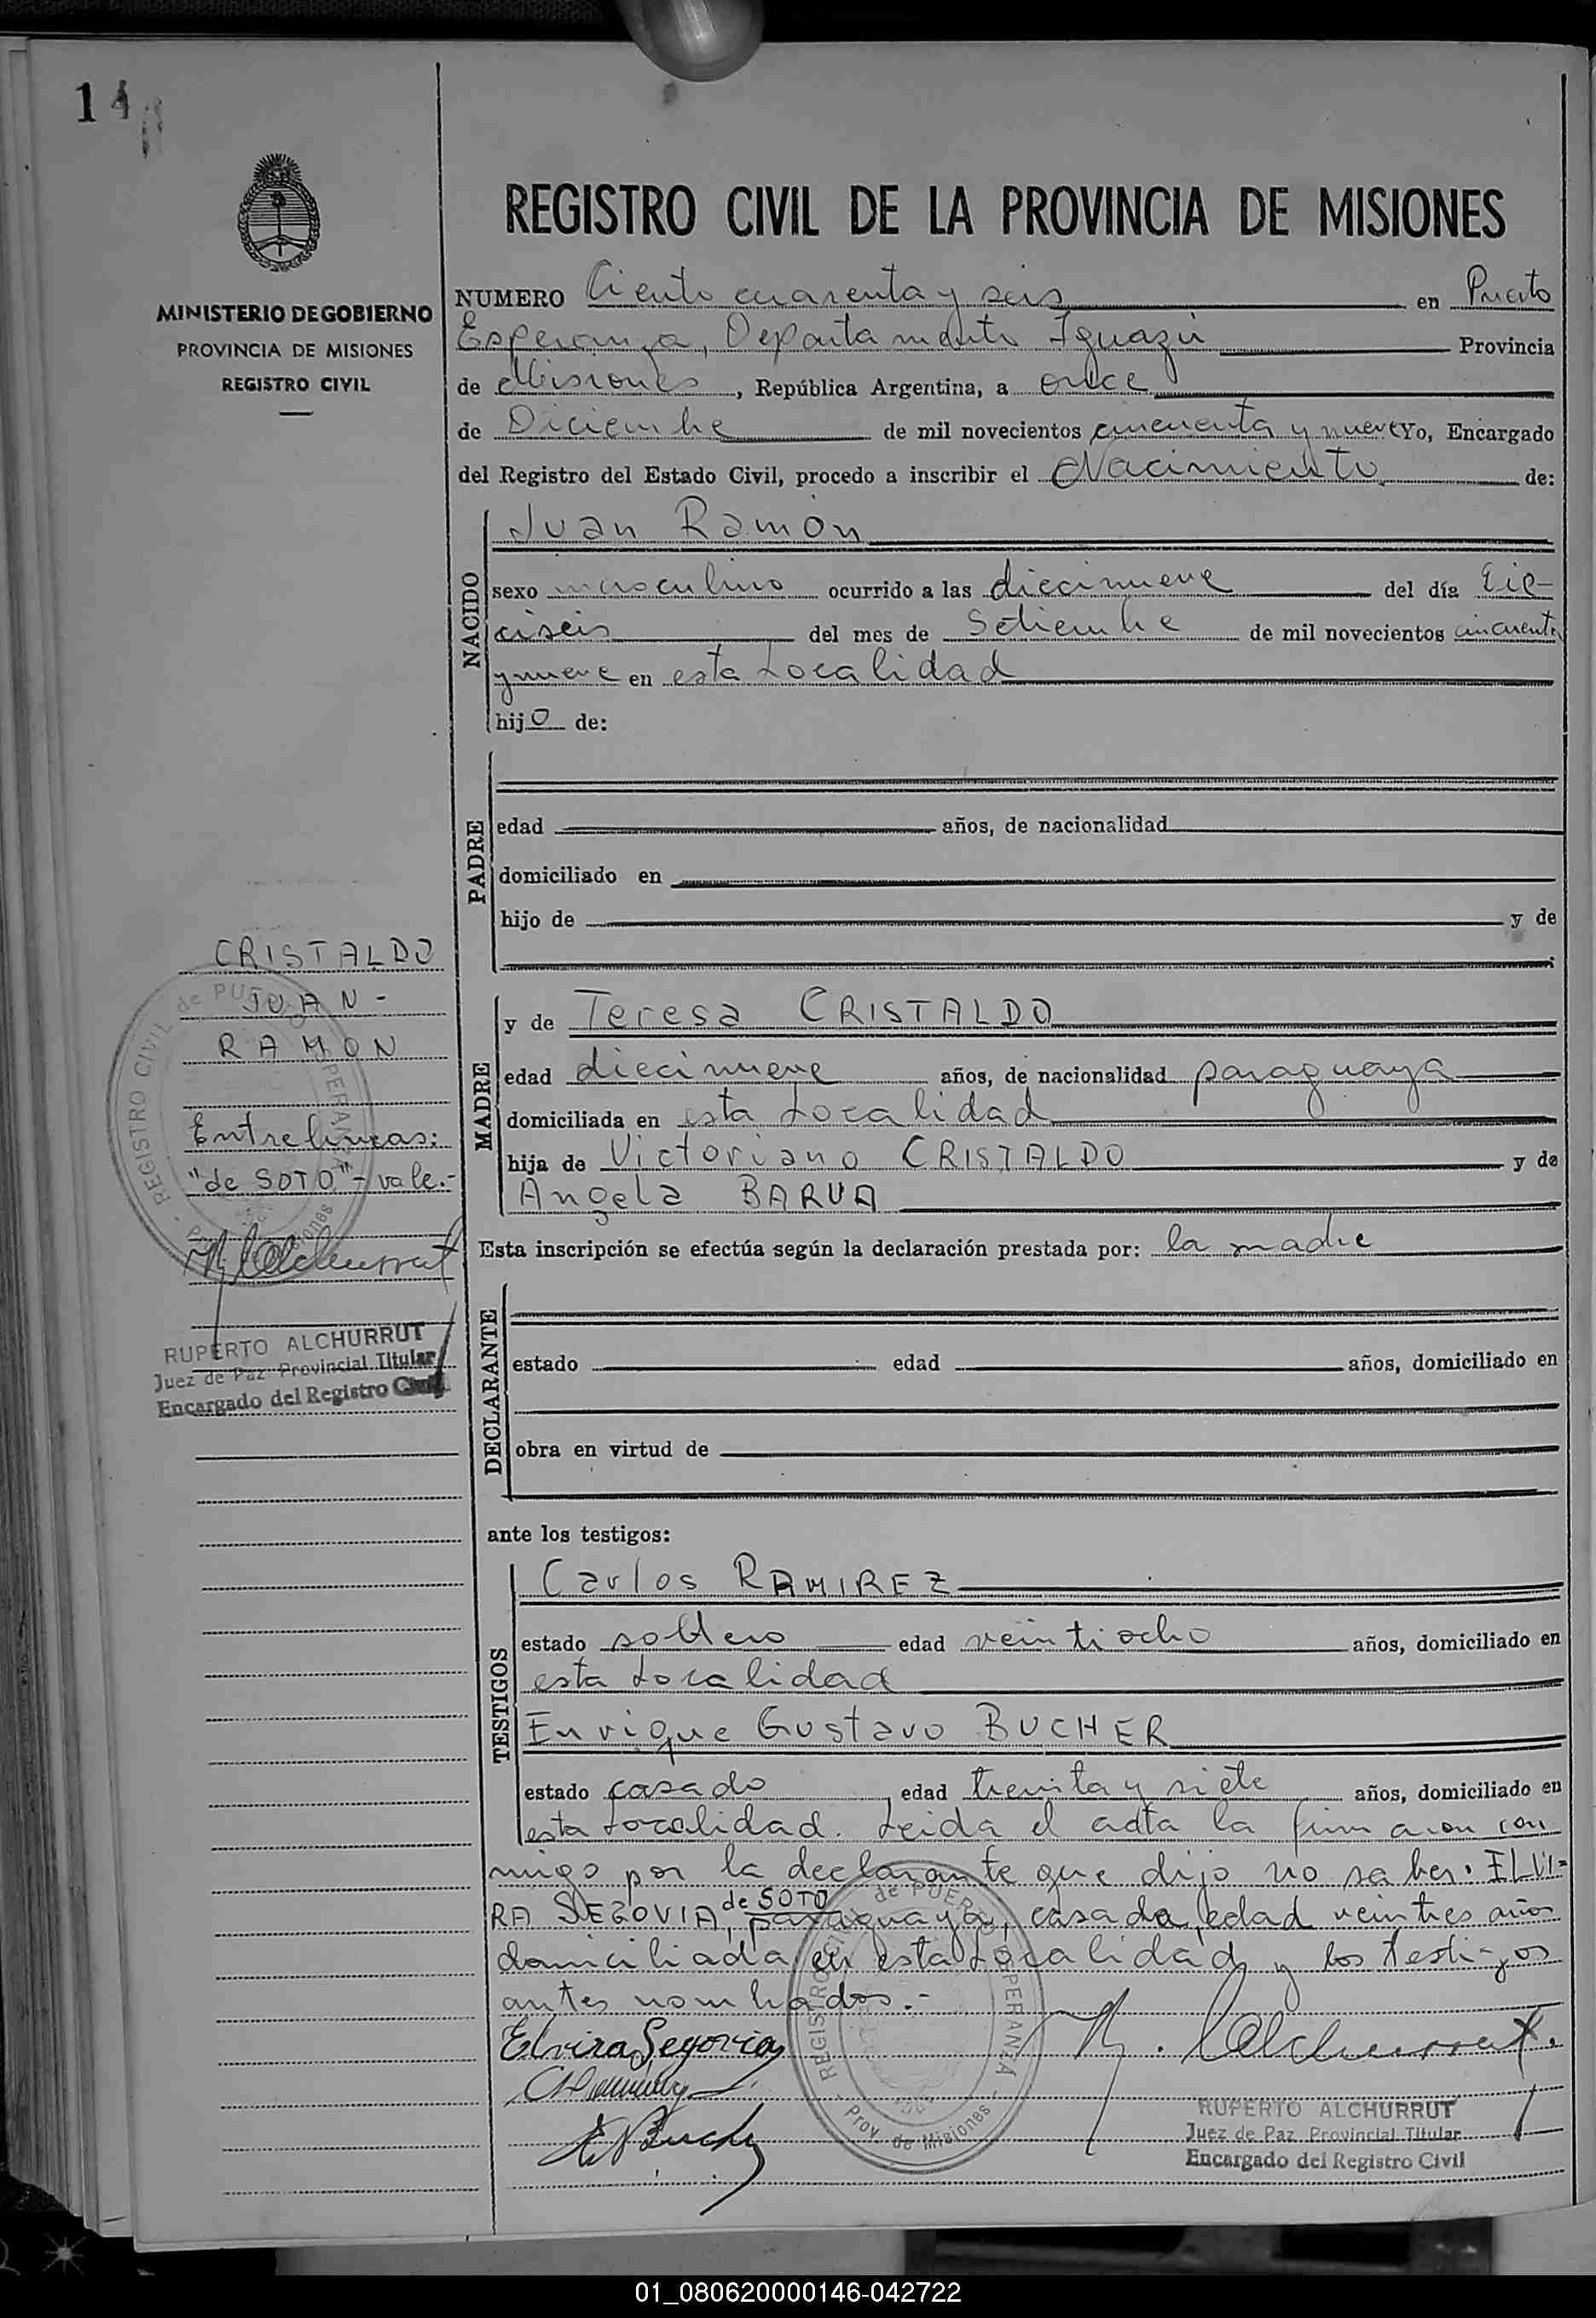 14
MINISTERIO DE GOBIERNO
PROVINCIA DE MISIONES
REGISTRO CIVIL
REGISTRO CIVIL DE LA PROVINCIA DE MISIONES
NUMERO Ciento cuarenta y seis en Puerto
Esperanza, Departamento Iguazú Provincia
de Misiones, República Argentina, a once
de Diciembre de mil novecientos cincuenta y nueve Yo, Encargado
del Registro del Estado Civil, procedo a inscribir el Nacimiento de:
NACIDO
Juan Ramón
sexo masculino ocurrido a las diecinueve del día die-
ciseis del mes de Setiembre de mil novecientos cincuenta
y nueve en esta Localidad
hijo de:
PADRE
edad años, de nacionalidad
domiciliado en
hijo de y de
MADRE
y de Teresa CRISTALDO
edad diecinueve años, de nacionalidad paraguaya
domiciliada en esta Localidad
hija de Victoriano CRISTALDO y de
Angela BARUA
CRISTALDO
JUAN -
RAMON
Entrelineas:
"de SOTO" - vale.-
REGISTRO CIVIL de PUERTO ESPERANZA
RUPERTO ALCHURRUT
Juez de Paz Provincial Titular
Encargado del Registro Civil
Esta inscripción se efectúa según la declaración prestada por: la madre
DECLARANTE
estado edad años, domiciliado en
obra en virtud de
ante los testigos:
TESTIGOS
Carlos RAMIREZ
estado soltero edad veintiocho años, domiciliado en
esta Localidad
Enrique Gustavo BUCHER
estado casado edad treinta y siete años, domiciliado en
esta Localidad. Leida el acta la firmaron con
migo por la declarante que dijo no saber. ELVI=
RA SEGOVIA, de SOTO paraguaya, casada, edad veintres años
domiciliada en esta Localidad y los testigos
antes nombrados.-
Elvira Segovia
R. Alchurrut.
REGISTRO CIVIL de PUERTO ESPERANZA
Prov. de Misiones
RUPERTO ALCHURRUT
Juez de Paz Provincial Titular
Encargado del Registro Civil
01_080620000146-042722